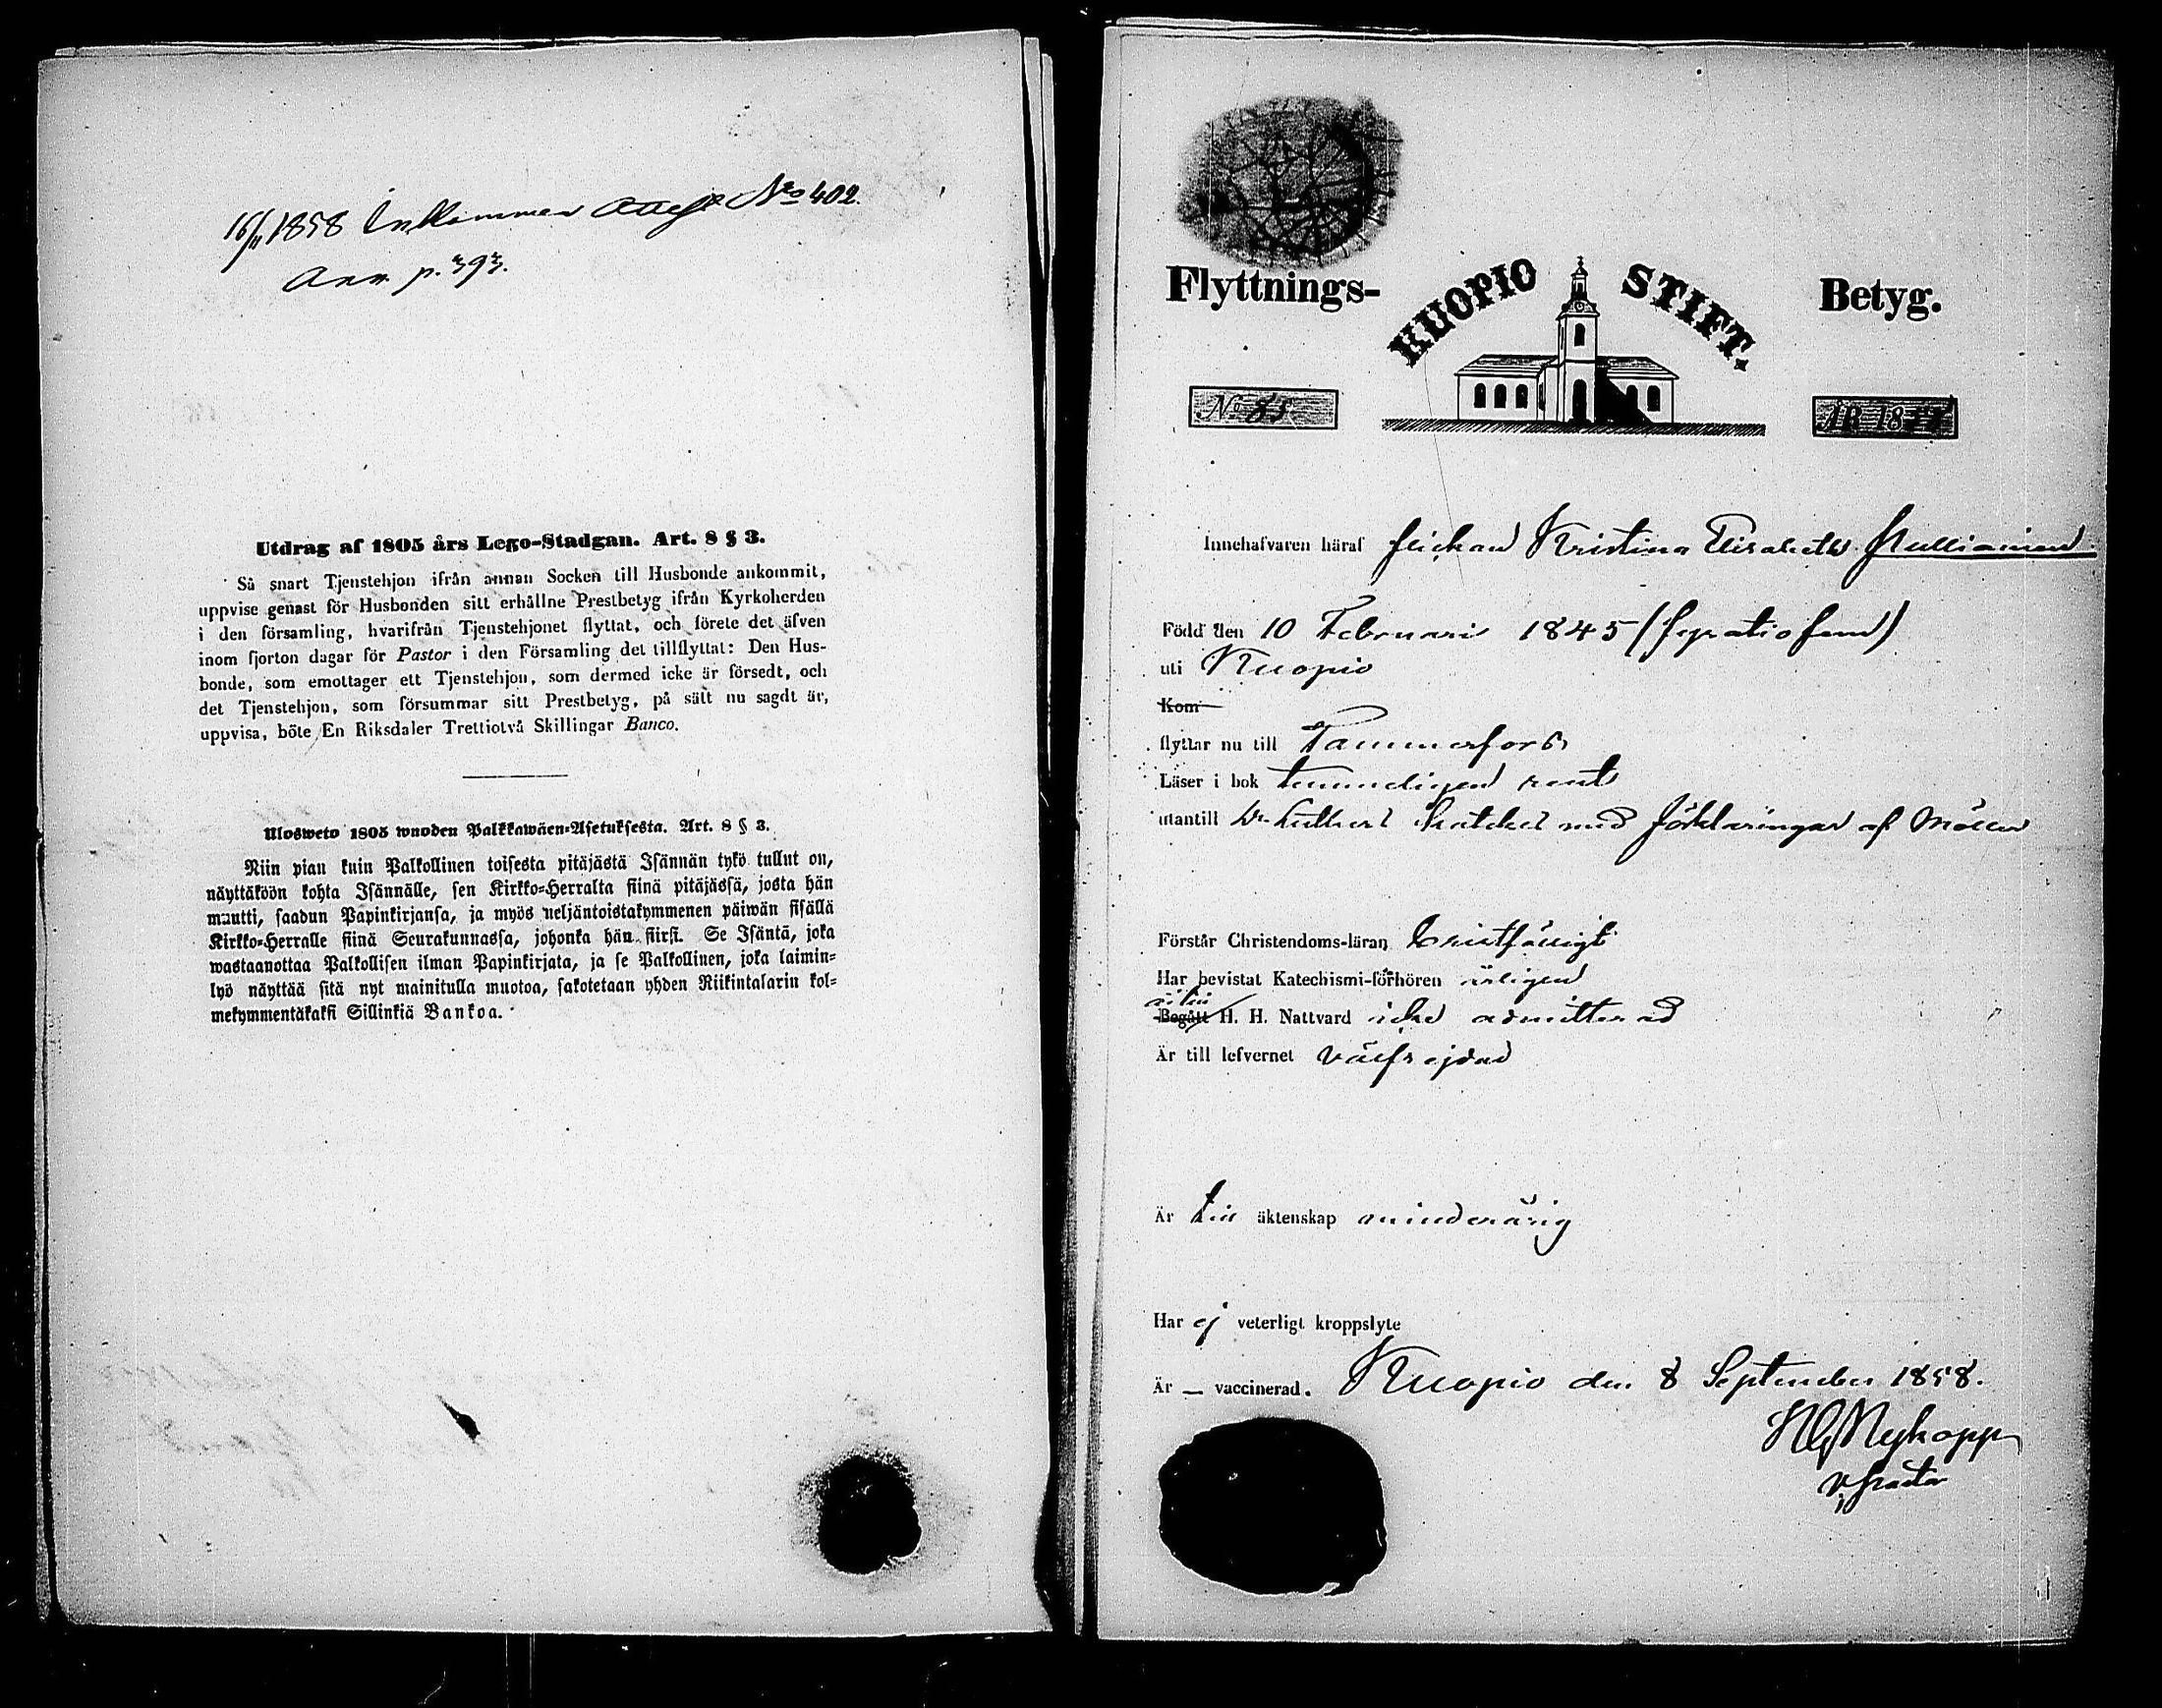 16/11 1858 Inkommen Attest No 402.
Ann. p. 393.
Utdrag af 1805 års Lego-Stadgan. Art. 8 § 3.
Så snart Tjenstehjon ifrån annan Socken till Husbonde ankommit,
uppvise genast för Husbonden sitt erhållne Prestbetyg ifrån Kyrkoherden
i den församling, hvarifrån Tjenstehjonet flyttat, och förete det äfven
inom fjorton dagar för Pastor i den Församling det tillflyttat: Den Hus-
bonde, som emottager ett Tjenstehjon, som dermed icke är försedt, och
det Tjenstehjon, som försummar sitt Prestbetyg, på sätt nu sagdt är,
uppvisa, böte En Riksdaler Trettiotvå Skillingar Banco.
Ulosweto 1805 wuoden Palkkawäen-Asetuksesta. Art. 8 § 3.
Niin pian kuin Palkollinen toisesta pitäjästä Isännän tykö tullut on,
näyttäköön kohta Isännälle, sen Kirkko-Herralta siinä pitäjässä, josta hän
muutti, saadun Papinkirjansa, ja myös neljäntoistakymmenen päiwän sisällä
Kirkko-Herralle siinä Seurakunnassa, johonka hän siirsi. Se Isäntä, joka
wastaanottaa Palkollisen ilman Papinkirjata, ja se Palkollinen, joka laimin-
lyö näyttää sitä nyt mainitulla muotoa, sakotetaan yhden Riikintalarin kol-
mekymmentäkaksi Sillinkiä Bankoa.
Flyttnings- KUOPIO STIFT. Betyg.
No 85 ÅR 18
Innehafvaren häraf flickan Kristina Elisabeth
Född den 10 Februari 1845
uti Kuopio
Kom
flyttar nu till Tammerfors
Läser i bok temmeligen rent
utantill Dr Luthers kateches med förklaringar af Möller
Förstår Christendoms-läran bristfälligt
Har bevistat Katechismi-förhören årligen
är till
Begått H. H. Nattvard icke admitterad
Är till lefvernet välfrejdad
Är till äktenskap minderårig
Har ej veterligt kroppslyte
Är — vaccinerad. Kuopio den 8 September 1858.
HG Nykopp
v. pastor